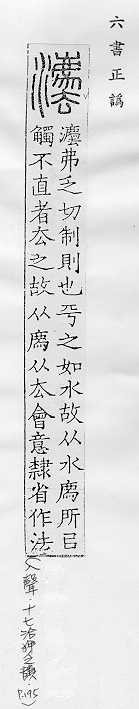 六書正譌
灋
灋弗乏切制則也平之如水故从水廌所㠯
觸不直者去之故从廌从去會意隷省作法
(入聲.十七洽狎乏韻.
P.195)